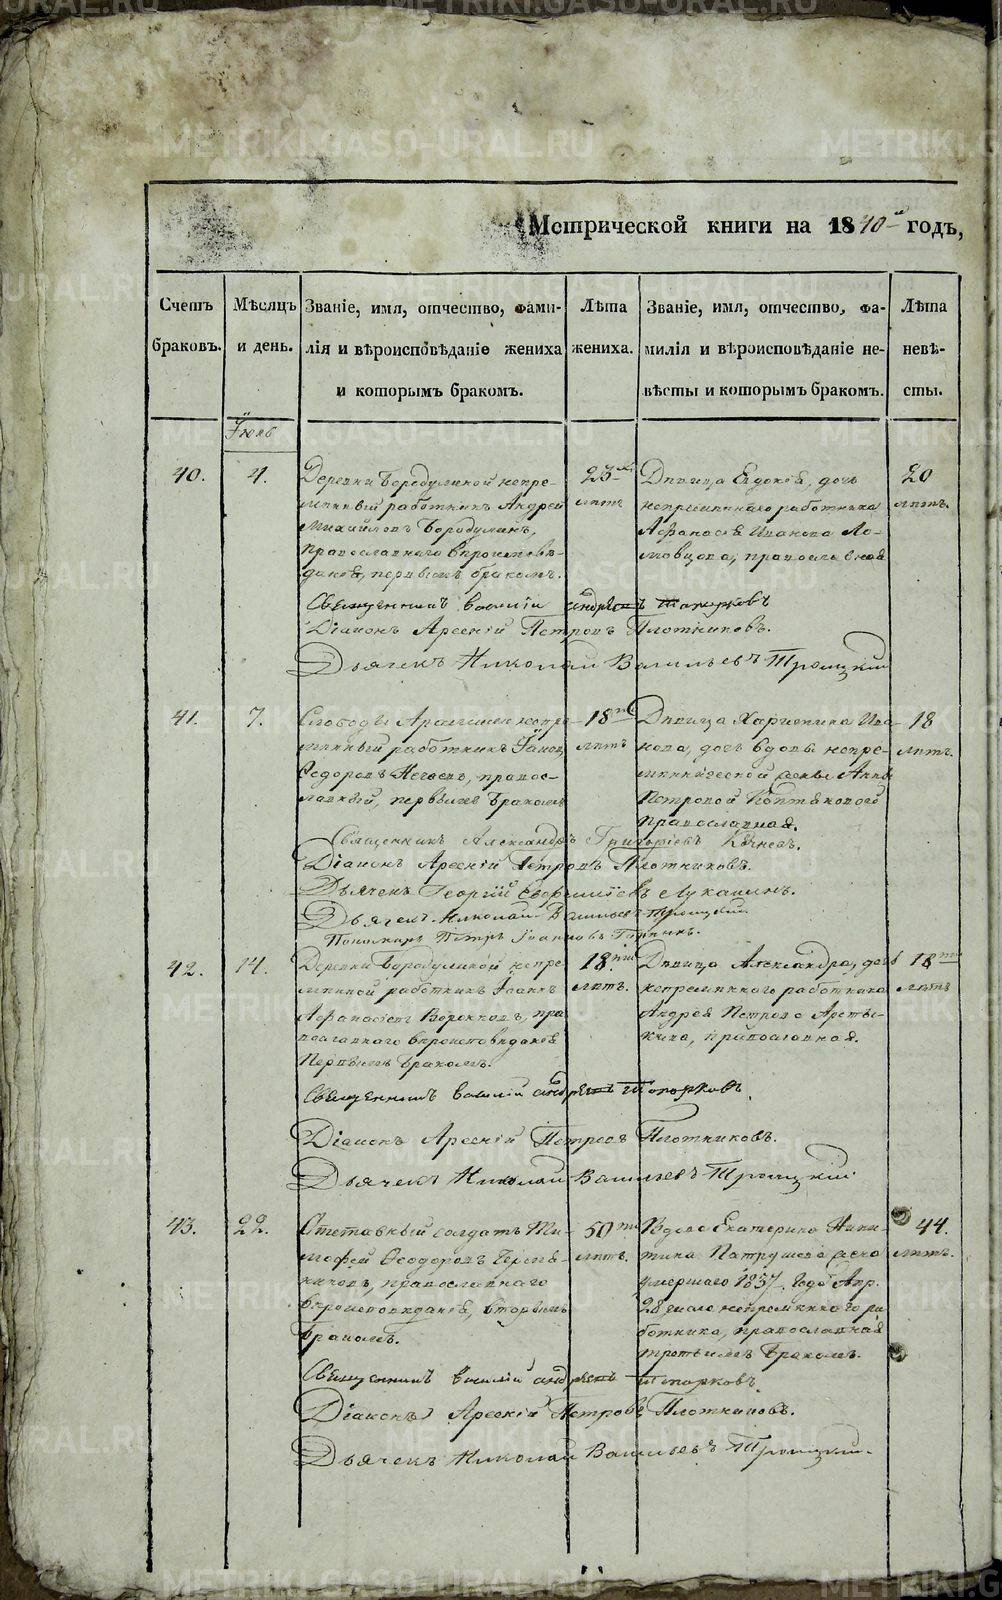 Метрической книги на 1840й годъ,
Счетъ браковъ.
Мѣсяцъ и день.
Званіе, имя, отчество, фами-
лія и вѣроисповѣданіе жениха
и которымъ бракомъ.
Лѣта жениха.
Званіе, имя, отчество, фа-
милія и вѣроисповѣданіе не-
вѣсты и которымъ бракомъ.
Лѣта невѣ-
сты.
Іюль
40.
4.
Деревни Бородулиной непре-
мѣнный работникъ Андрей
Михайловъ Бородулинъ,
православнаго вѣроисповѣ-
данія, первымъ бракомъ.
23хъ
лѣтъ
Дѣвица Евдокія, дочь
непремѣннаго работника
Афанасія Иванова Ло-
мовцова, православная
20
лѣтъ.
Священникъ Василій Андреевъ Топорковъ
Діаконъ Арсеній Петровъ Плотниковъ.
Дьячекъ Николай Васильевъ Троицкій
41.
7.
Слободы непре-
мѣнный работникъ
Федоровъ православ-
славный, первымъ бракомъ
18ти
лѣтъ
Дѣвица Харитина Ива-
нова, дочь вдовы непре-
мѣннической жены Анны
Петровой
православная.
18
лѣтъ.
Священникъ Александръ Григоріевъ
Діаконъ Арсеній Петровъ Плотниковъ.
Дьячекъ Георгій Лукинъ.
Дьячекъ Николай Васильевъ Троицкій
Пономарь Петръ Іоанновъ
42.
14.
Деревни Бородулиной непре-
мѣнной работникъ Іоаннъ
Афанасіевъ пра-
вославнаго вѣроисповѣданія
Первымъ бракомъ.
18ти
лѣтъ.
Дѣвица Александра, дочь
непремѣннаго работника
Андрея Петрова
православная.
18ти
лѣтъ
Священникъ Василій Андреевъ Топорковъ.
Діаконъ Арсеній Петровъ Плотниковъ.
Дьячекъ Николай Васильевъ Троицкій
43.
22.
Отставный солдатъ Ти-
мофей Феодоровъ
православнаго
вѣроисповѣданія, вторымъ
бракомъ.
50ти
лѣтъ.
Вдова Екатерина Ники-
тина Патрушева жена
умершаго 1837. года Апр.
28 числа непремѣннаго ра-
ботника, православная
третьимъ бракомъ.
44.
лѣтъ.
Священникъ Василій Андреевъ Топорковъ.
Діаконъ Арсеній Петровъ Плотниковъ.
Дьячекъ Николай Васильевъ Троицкій.
METRIKI.GASO-URAL.RU